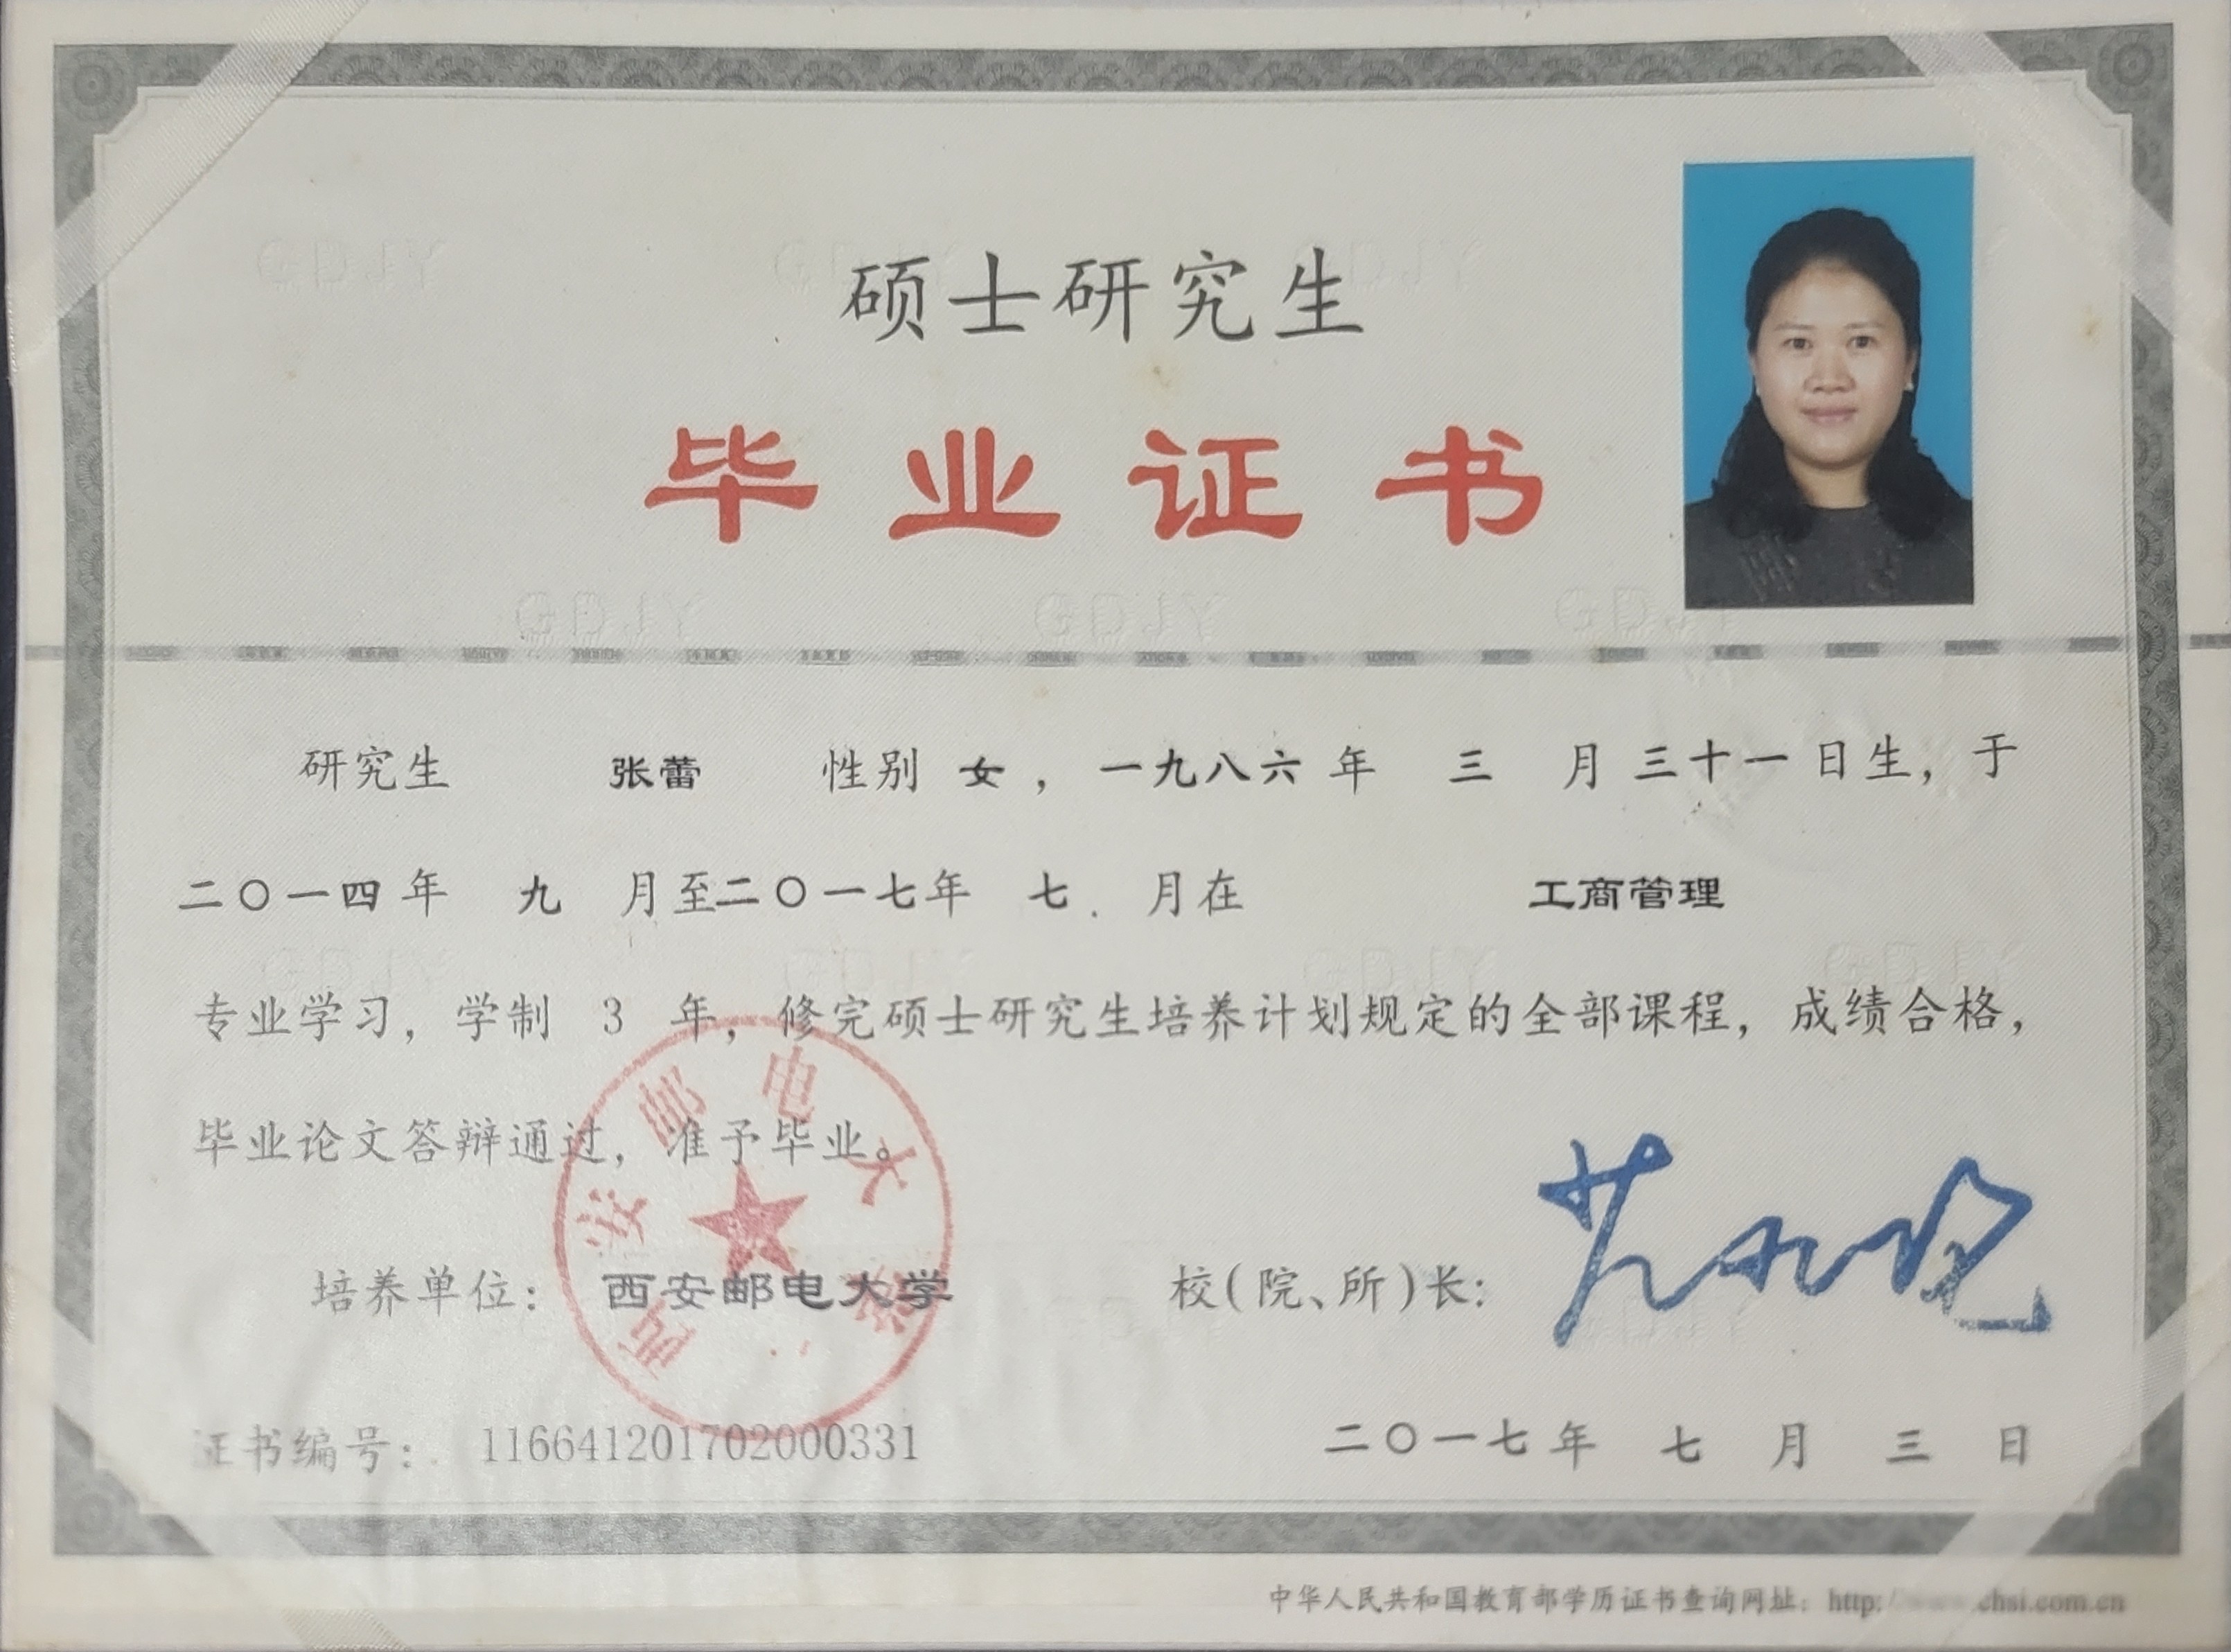 硕士研究生
毕业证书
研究生 张蕾 性别 女，一九八六 年 三 月 三十一 日生，于
二〇一四 年 九 月至二〇一七年 七 月在 工商管理
专业学习，学制 3 年，修完硕士研究生培养计划规定的全部课程，成绩合格，
毕业论文答辩通过，准予毕业。
西安邮电大学
培养单位： 西安邮电大学 校(院、所)长：
证书编号： 116641201702000331 二〇一七 年 七 月 三 日
中华人民共和国教育部学历证书查询网址：http: chsi.com.cn